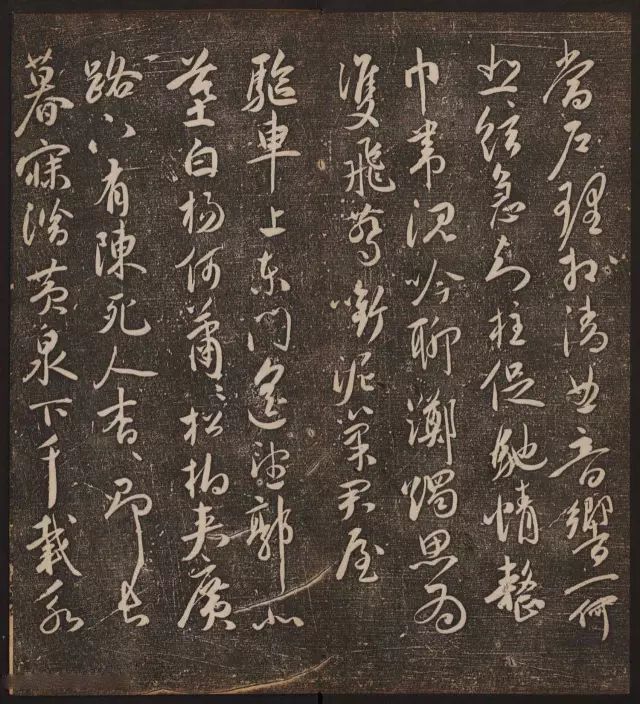 當户理清曲音響一何
悲弦急知柱促馳情整
巾帶沉吟聊躑躅思為
雙飛燕銜泥巢君屋
驅車上東門遙望郭北
墓白楊何蕭〻松柏夾廣
路下有陳死人杳〻即長
暮寐潛黃泉下千載永